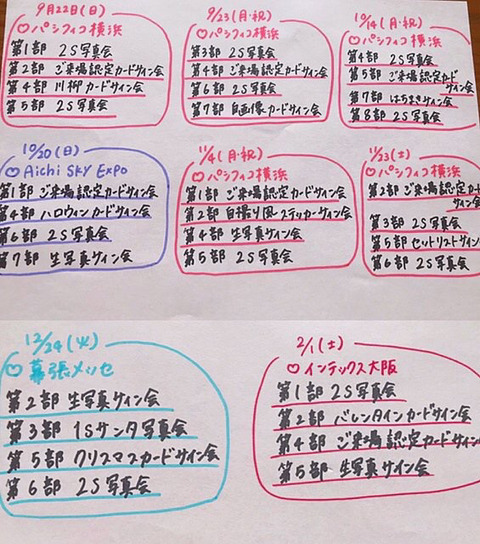 9月22日(日)
♡パシフィコ横浜
第1部 2S写真会
第2部 ご来場認定カードサイン会
第4部 川柳カードサイン会
第5部 2S写真会
9/23(月・祝)
♡パシフィコ横浜
第3部 2S写真会
第4部 ご来場認定カードサイン会
第6部 2S写真会
第7部 自画像カードサイン会
10/14(月・祝)
♡パシフィコ横浜
第4部 2S写真会
第5部 ご来場認定カード
サイン会
第7部 はちまきサイン会
第8部 2S写真会
10/20(日)
♡Aichi SKY EXPO
第1部 ご来場認定カードサイン会
第4部 ハロウィンカードサイン会
第6部 2S写真会
第7部 生写真サイン会
11/4(月・祝)
♡パシフィコ横浜
第1部 ご来場認定カードサイン会
第2部 自撮り風ステッカーサイン会
第4部 生写真サイン会
第5部 2S写真会
11/23(土)
♡パシフィコ横浜
第2部 ご来場認定カード
サイン会
第3部 2S写真会
第5部 セットリストサイン会
第6部 2S写真会
12/24(火)
♡幕張メッセ
第2部 生写真サイン会
第3部 1Sサンタ写真会
第5部 クリスマスカードサイン会
第6部 2S写真会
2/1(土)
♡インテックス大阪
第1部 2S写真会
第2部 バレンタインカードサイン会
第4部 ご来場認定カードサイン
第5部 生写真サイン会